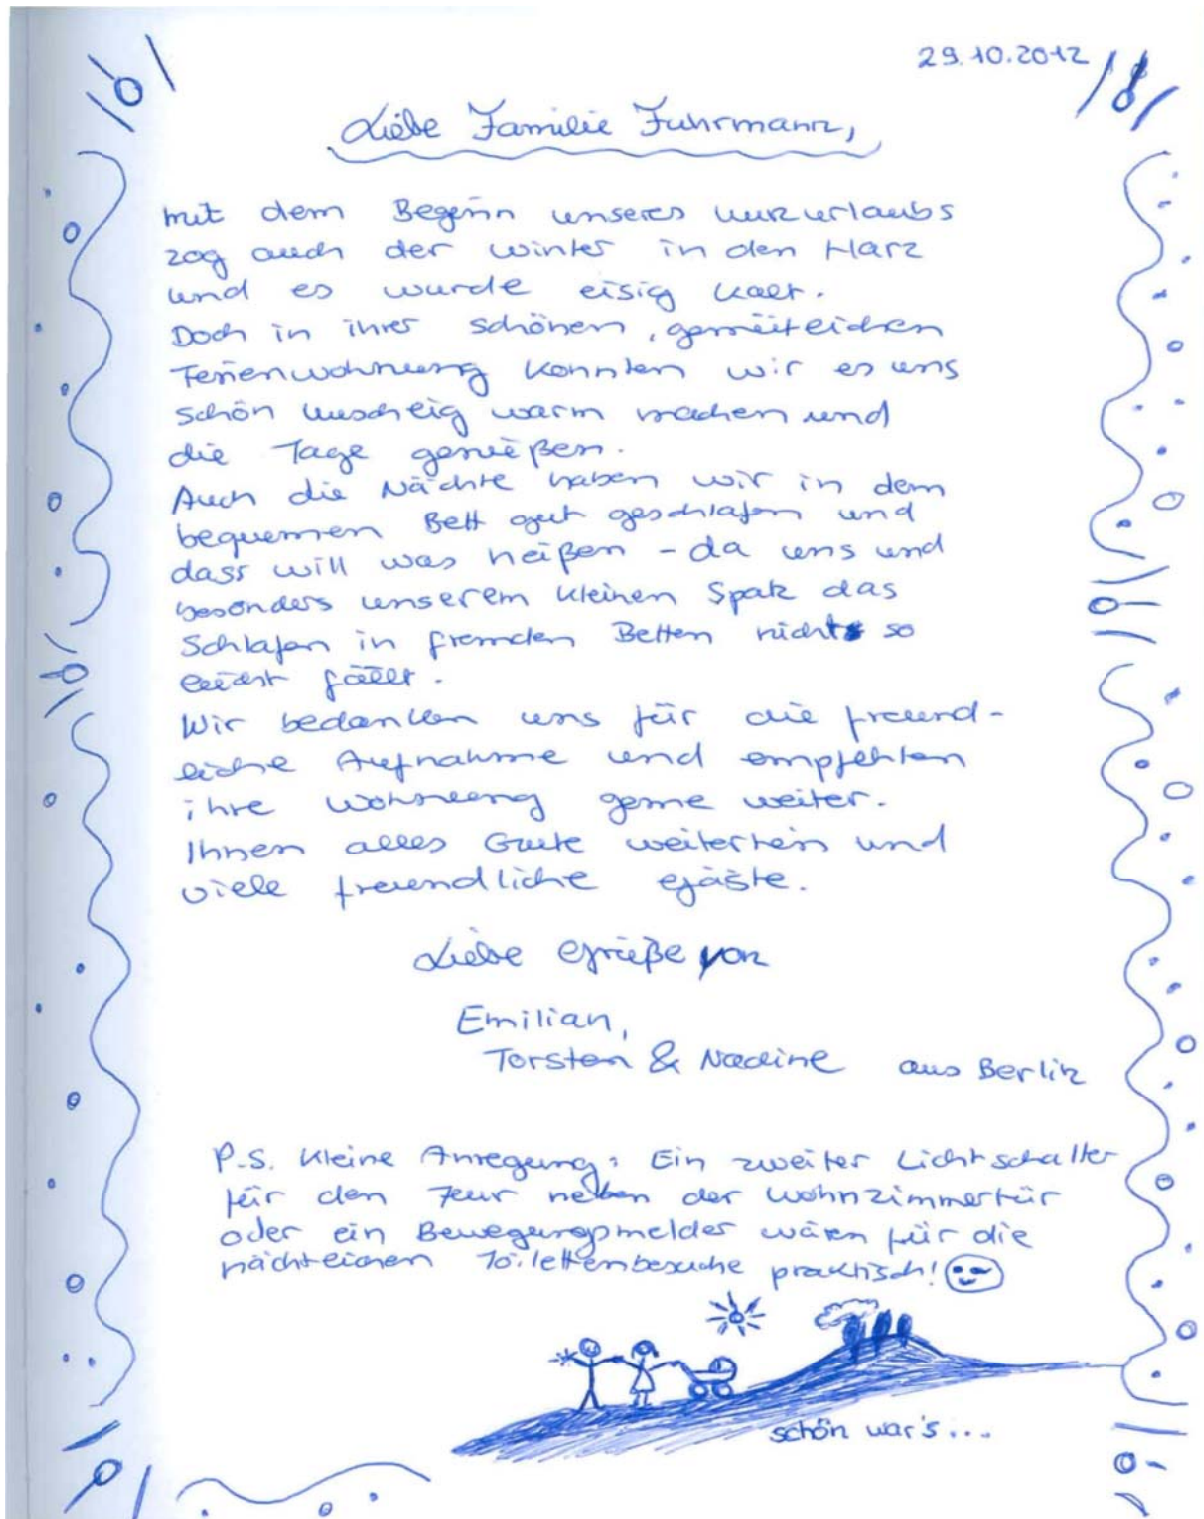 29.10.2012
Liebe Familie Fuhrmann,
mit dem Beginn unseres Kurzurlaubs
zog auch der Winter in den Harz
und es wurde eisig kalt.
Doch in ihrer schönen, gemütlichen
Ferienwohnung konnten wir es uns
schön kuschelig warm machen und
die Tage genießen.
Auch die Nächte haben wir in dem
bequemen Bett gut geschlafen und
dass will was heißen - da uns und
besonders unserem kleinen Spatz das
Schlafen in fremden Betten nicht so
leicht fällt.
Wir bedanken uns für die freund-
liche Aufnahme und empfehlen
ihre Wohnung gerne weiter.
Ihnen alles Gute weiterhin und
viele freundliche Gäste.
Liebe Grüße von
Emilian,
Torsten & Nadine aus Berlin
P.S. Kleine Anregung: Ein zweiter Lichtschalter
für den Flur neben der Wohnzimmertür
oder ein Bewegungsmelder wären für die
nächtlichen Toilettenbesuche praktisch!
schön war's...